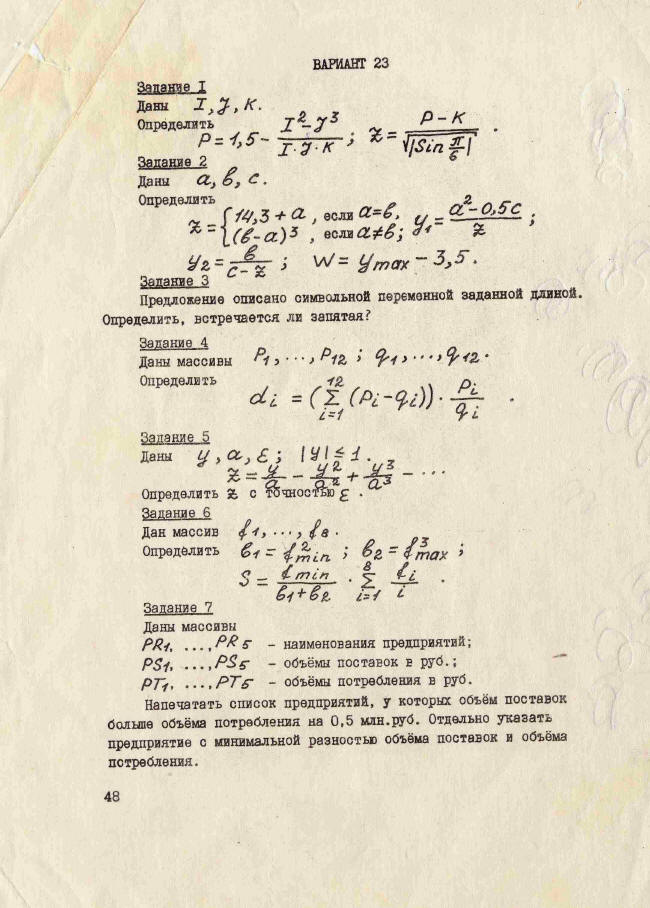 ВАРИАНТ 23
Задание I
Даны I, J, K.
Определить
P = 1,5 - (I² - J³)/(I·J·K) ; Z = (P - K)/√|Sin π/6| .
Задание 2
Даны a, b, c.
Определить
Z = { 14,3 + a , если a = b,
(b - a)³ , если a ≠ b; y₁ = (a² - 0,5c)/Z ;
y₂ = b/(c - Z) ; W = y max - 3,5 .
Задание 3
Предложение описано символьной переменной заданной длиной.
Определить, встречается ли запятая?
Задание 4
Даны массивы P₁, ..., P₁₂ ; q₁, ..., q₁₂.
Определить
dᵢ = (Σ¹²ᵢ₌₁ (Pᵢ - qᵢ)) · Pᵢ/qᵢ .
Задание 5
Даны y, a, ε ; |y| ≤ 1 .
Z = y/a - y²/a² + y³/a³ - ...
Определить Z с точностью ε .
Задание 6
Дан массив f₁, ..., f₈ .
Определить b₁ = f²min ; b₂ = f³max ;
S = f min/(b₁ + b₂) · Σ⁸ᵢ₌₁ fᵢ/i .
Задание 7
Даны массивы
PR₁, ..., PR₅ - наименования предприятий;
PS₁, ..., PS₅ - объёмы поставок в руб.;
PT₁, ..., PT₅ - объёмы потребления в руб.
Напечатать список предприятий, у которых объём поставок
больше объёма потребления на 0,5 млн.руб. Отдельно указать
предприятие с минимальной разностью объёма поставок и объёма
потребления.
48